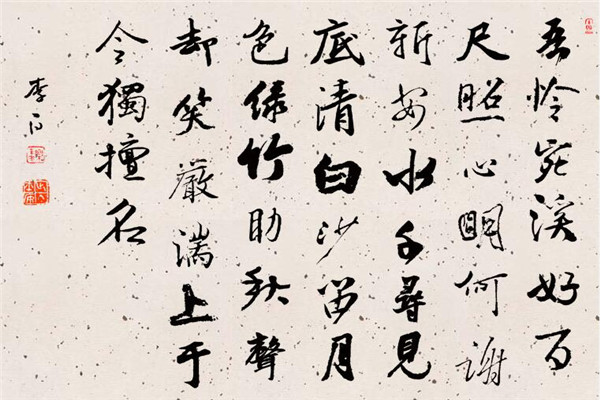 吾怜宛溪好百
尺照心明何謝
新安水千尋見
底清白沙留月
色绿竹助秋聲
却笑嚴湍上于
今獨擅名
李白